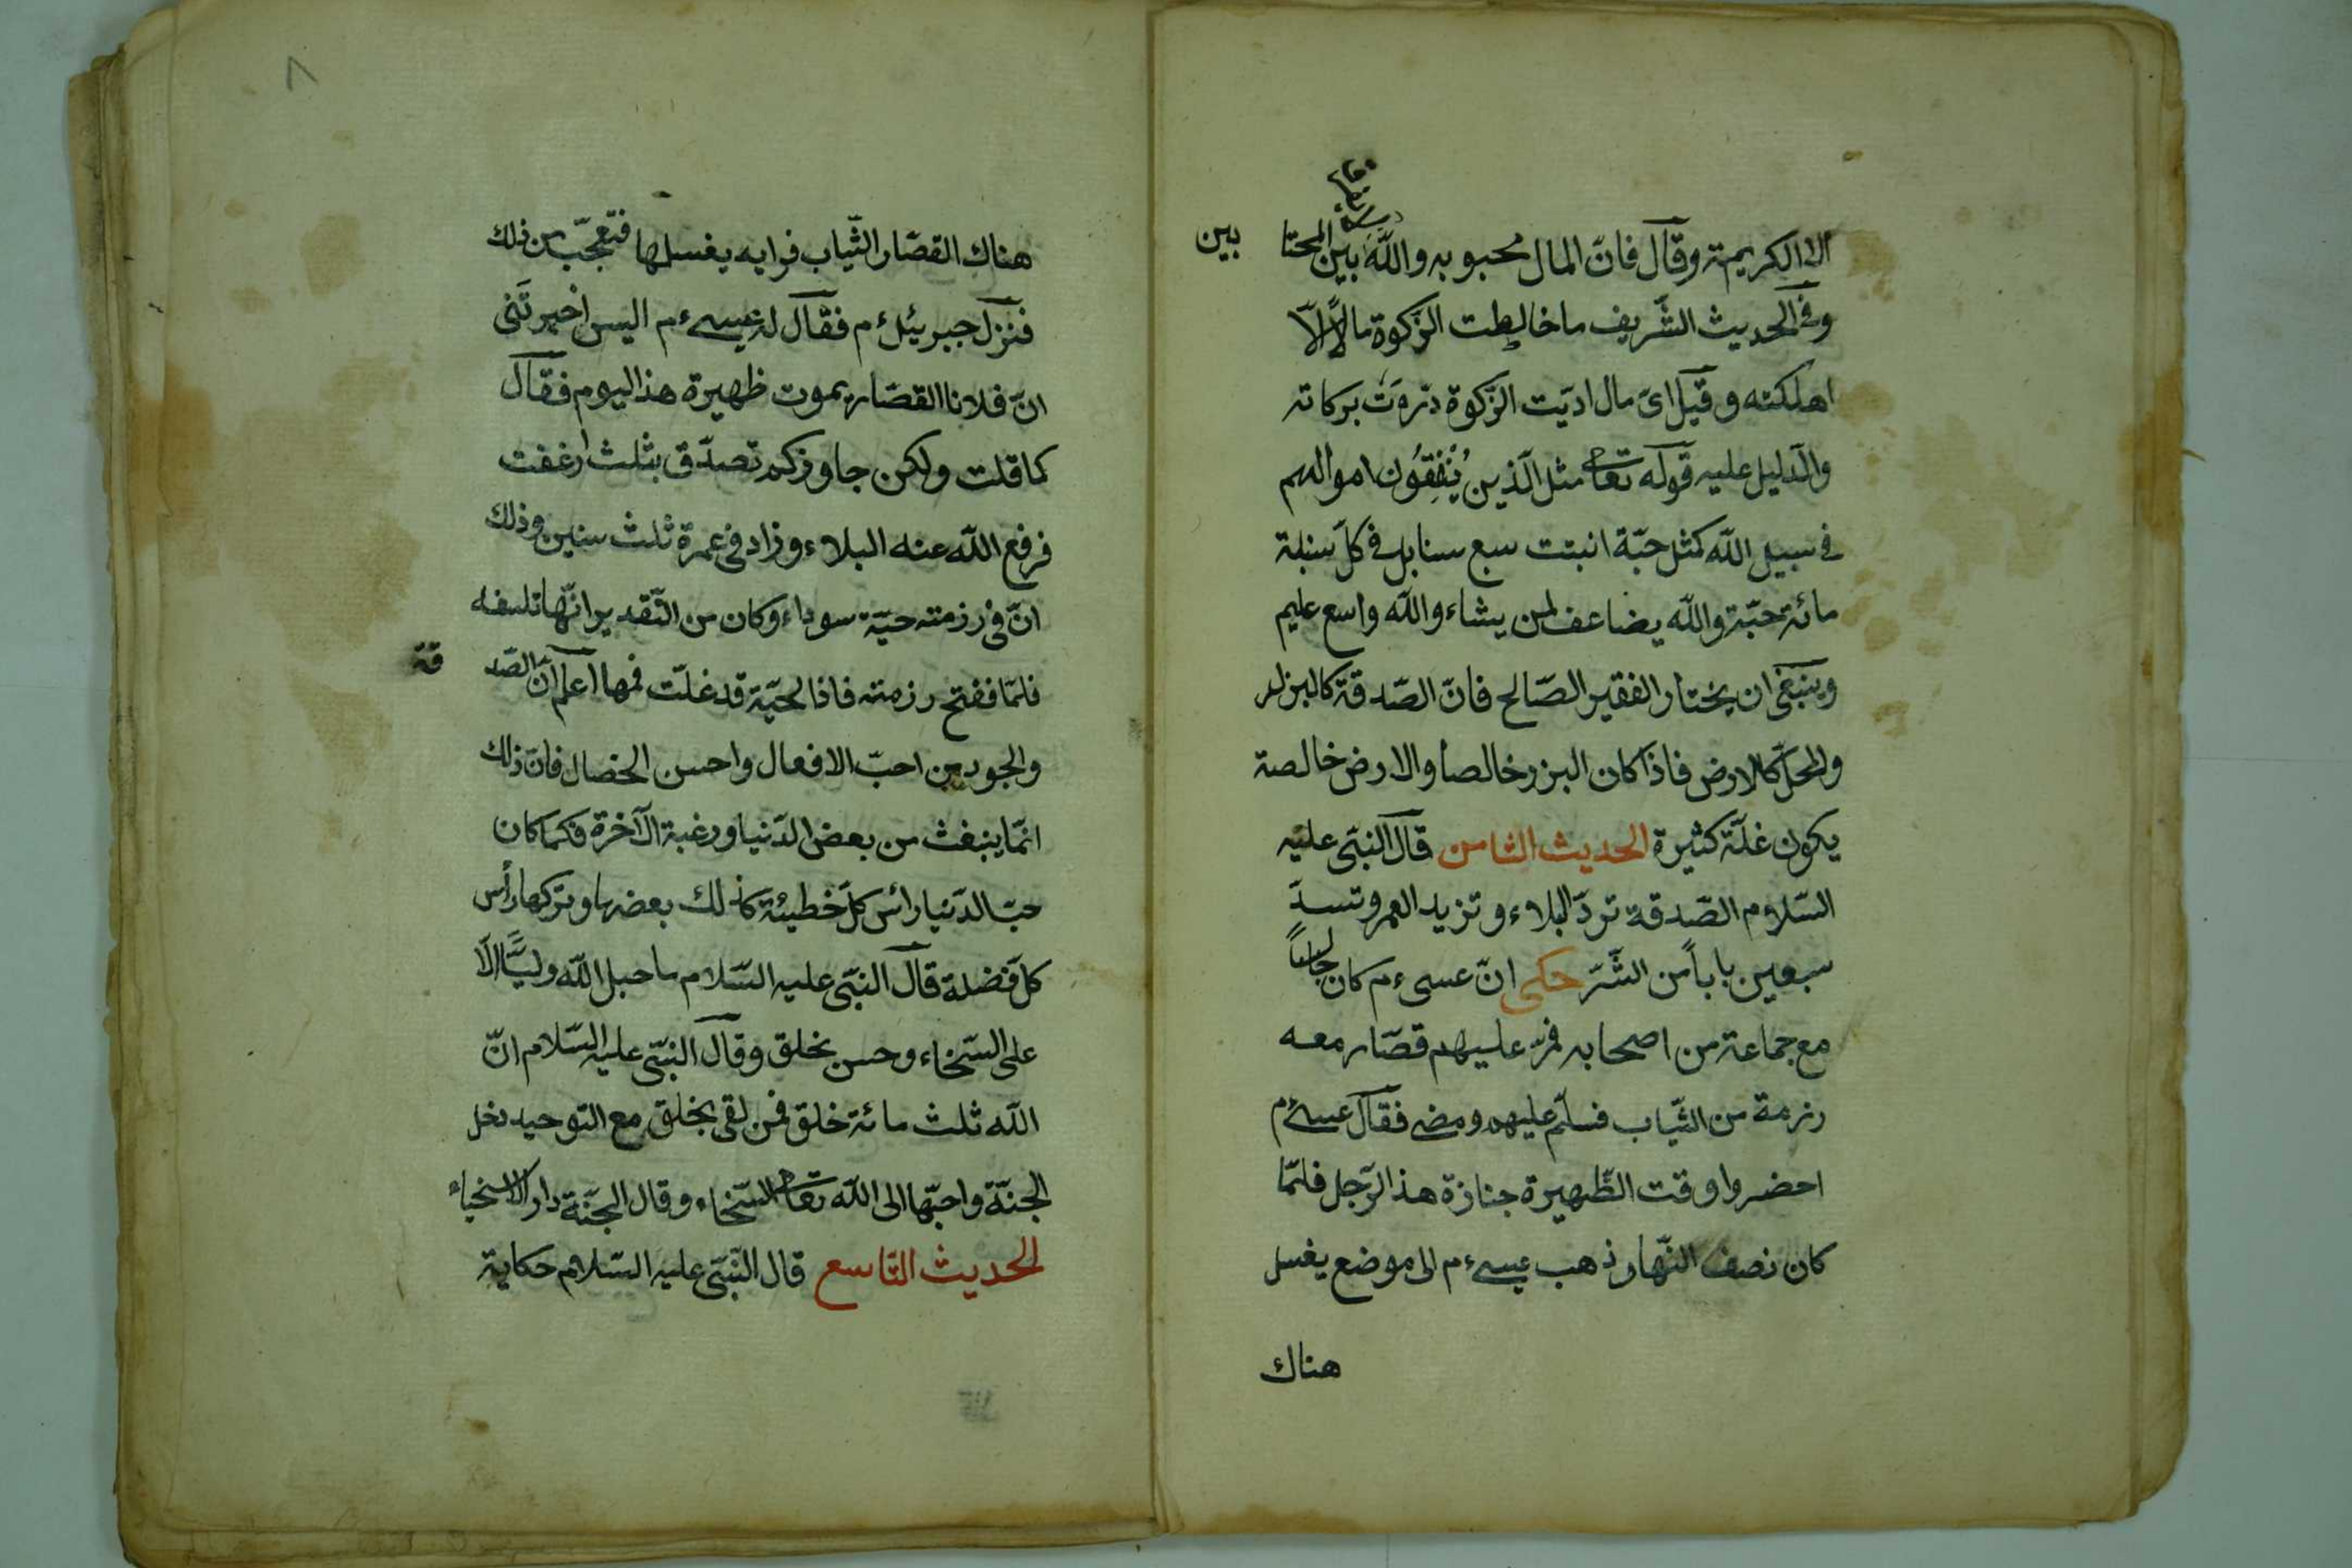 الا الكريمة وقال فانّ المال محبوبه والله بين المحتا بين
وفى الحديث الشّريف ما خالطت الزّكوة مالاً الّا
اهلكته وقيل اىّ مال ادّيت الزّكوة درّوت بركاته
والدّليل عليه قوله تعا مثل الّذين يُنْفِقُون اموالهم
فى سبيل الله كمثل حبّة انبتت سبع سنابل فى كلّ سنبلة
مائة حبّة والله يضاعف لمن يشاء والله واسع عليم
وينبغى ان يختار الفقير الصّالح فانّ الصّدقة كالبزر
والمحلّ كالارض فاذا كان البزر خالصا والارض خالصة
يكون غلّة كثيرة الحديث الثامن قال النّبى عليه
السّلام الصّدقة تردّ البلاء وتزيد العمر وتسدّ
سبعين باباً من الشّرّ حكى انّ عسى ءم كان جالساً
مع جماعة من اصحابه فمرّ عليهم قصّار معه
رزمة من الثّياب فسلّم عليهم ومضى فقال عيسى ءم
احضروا وقت الظّهيرة جنازة هذا الرّجل فلمّا
كان نصف النّهار ذهب عيسى ءم الى موضع يغسل
هناك
٨
هناك القصّار الثّياب فرايه يغسلها فتعجّب من ذلك
فنزل جبريئل ءم فقال له عيسى ءم اليس اخبرتَنى
انّ فلانا القصّار يموت ظهيرة هذا اليوم فقال
كما قلت ولكن جاوزكم تصدّق بثلث ارغفت
فرفع الله عنه البلاء وزاد فى عمرة ثلث سنين وذلك
انّ فى رزمته حيّة سوداء وكان من التّقدير انّها تلسفه
فلمّا ففتح رزمته فاذا الحيّة قد غلّت فمها اعلم انّ الصّد قة
والجود من احبّ الافعال واحسن الخصال فانّ ذلك
انّما ينبغث من بعض الدّنيا ورغبة الآخرة فكما كان
حبّ الدّنيا رائس كلّ خطيئة كذلك بعضها وتركها رأس
كلّ فضلة قال النّبى عليه السّلام ما حبل الله وليّاً الّا
على السّخاء وحسن بخلق وقال النّبى عليه السّلام انّ
الله ثلث مائة خلق فمن لقى بخلق مع التّوحيد دخل
الجنّة واحبّها الى الله تعا السّخاء وقال الجنّة دار الاسخياء
الحديث التّاسع قال النّبى عليه السّلام حكاية